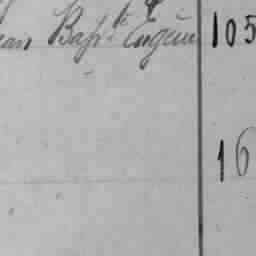 Bapte Eugène 105
16